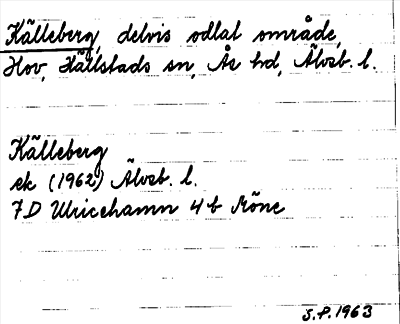 Källeberg, delvis odlat område,
Hov, Hällstads sn, Ås hd, Älvsb. l.
Källeberg
ek (1962) Älvsb. l.
7D Ulricehamn 4b Möne
S.P. 1963